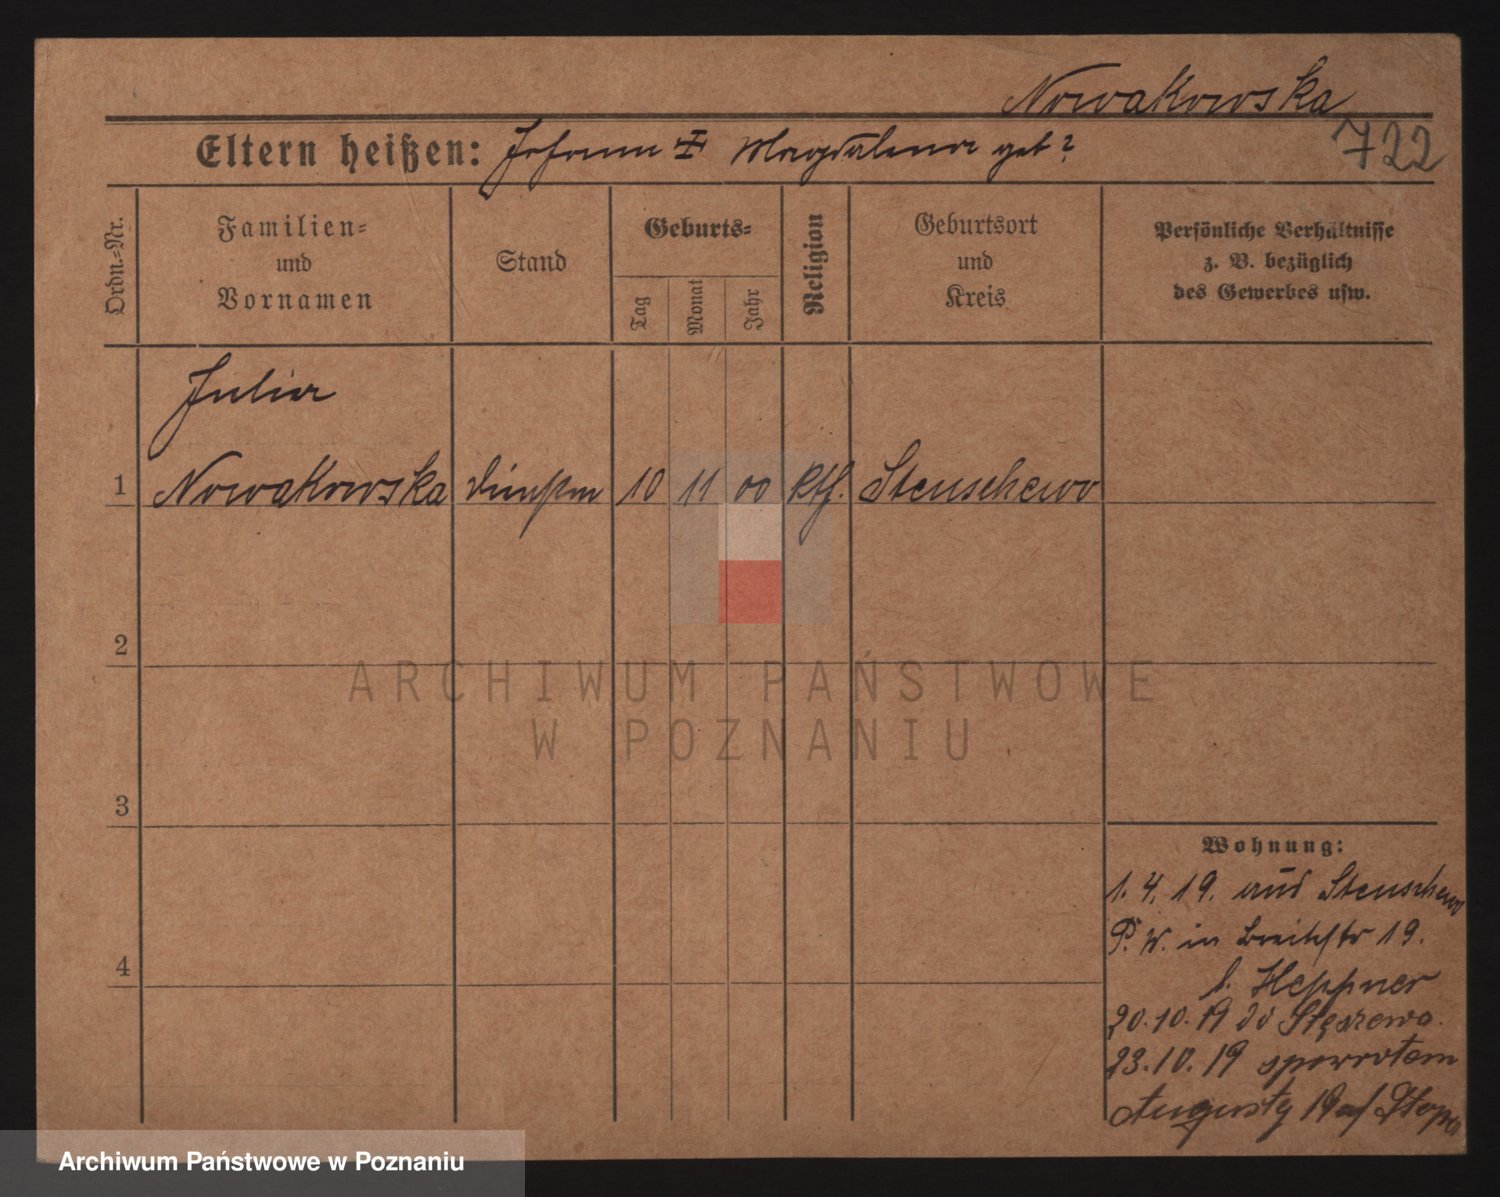 Nowakowska
722
Eltern heißen: Johann Magdalena geb?
Ordn.-Nr.
Familien-
und
Vornamen
Stand
Geburts-
Tag
Monat
Jahr
Religion
Geburtsort
und
Kreis
Persönliche Verhältnisse
z. B. bezüglich
des Gewerbes usw.
Julia
1 Nowakowska 10 11 00 kth. Stenschewo
2
3
4
ARCHIWUM PAŃSTWOWE
W POZNANIU
Wohnung:
1. 4. 19. aus Stenschewo
P. W. in Breitestr 19.
b. Heppner
20.10.19 do Stęszewa.
23.10.19 spowrotem
Augusty 19
Archiwum Państwowe w Poznaniu